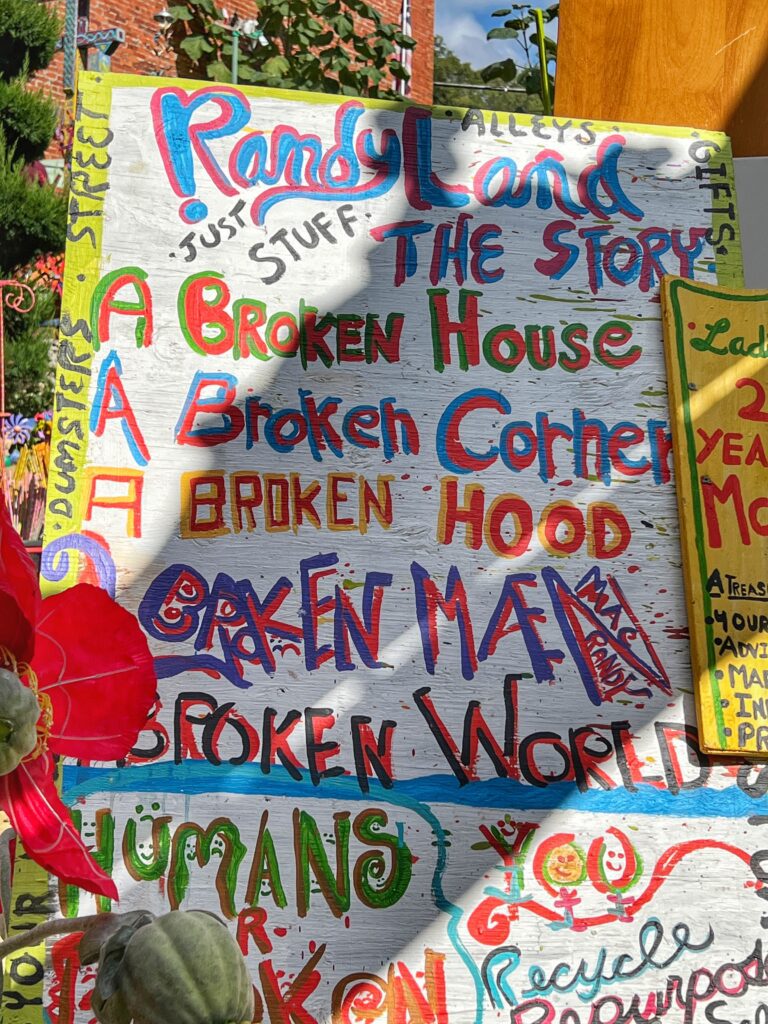 RandyLand
ALLEYS
GIFTS
STREET
JUST
STUFF.
THE STORY
DUMSTERS
A BROKEN HOUSE
A Broken Corner
A BROKEN HOOD
a BROKEN MAN
MAC
RANDY
BROKEN WORLD
HUMANS
R
BROKEN
YOU
Recycle
Repurpose
YOUR
Ladi
2
YEA
MO
A TREAS
YOUR
ADVI
MAP
IN
PR